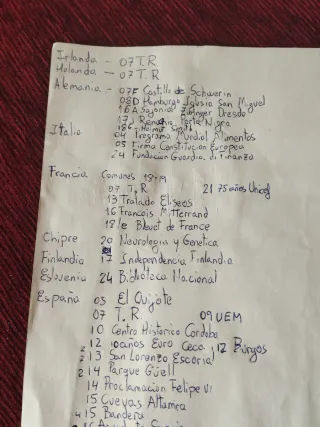 Irlanda - 07 T.R
Holanda - 07 T.R
Alemania - 07F Castillo de Schwerin
08D Hamburgo Iglesia San Miguel
16A Sajonia Zwinger Dresde
17 Renania Porta Nigra
18G Helmut Smith
Italia 04 Programa Mundial Alimentos
05 Firma Constitucion Europea
24 Fundacion Guardia di Finanza
Francia Comunes
07 T.R 21 75 años Unicef
13 Tratado Eliseos
16 Francois Mitterrand
18 Bleuet de France
Chipre 20 Neurologia y Genetica
Finlandia 17 Independencia Finlandia
Eslovenia 24 Biblioteca Nacional
España 05 El Quijote
07 T.R. 09 UEM
10 Centro Historico Cordoba
2 12 10 años Euro Ceca 12 Burgos
2 13 San Lorenzo Escorial
2 14 Parque Güell
14 Proclamacion Felipe VI
15 Cuevas Altamira
4 15 Bandera